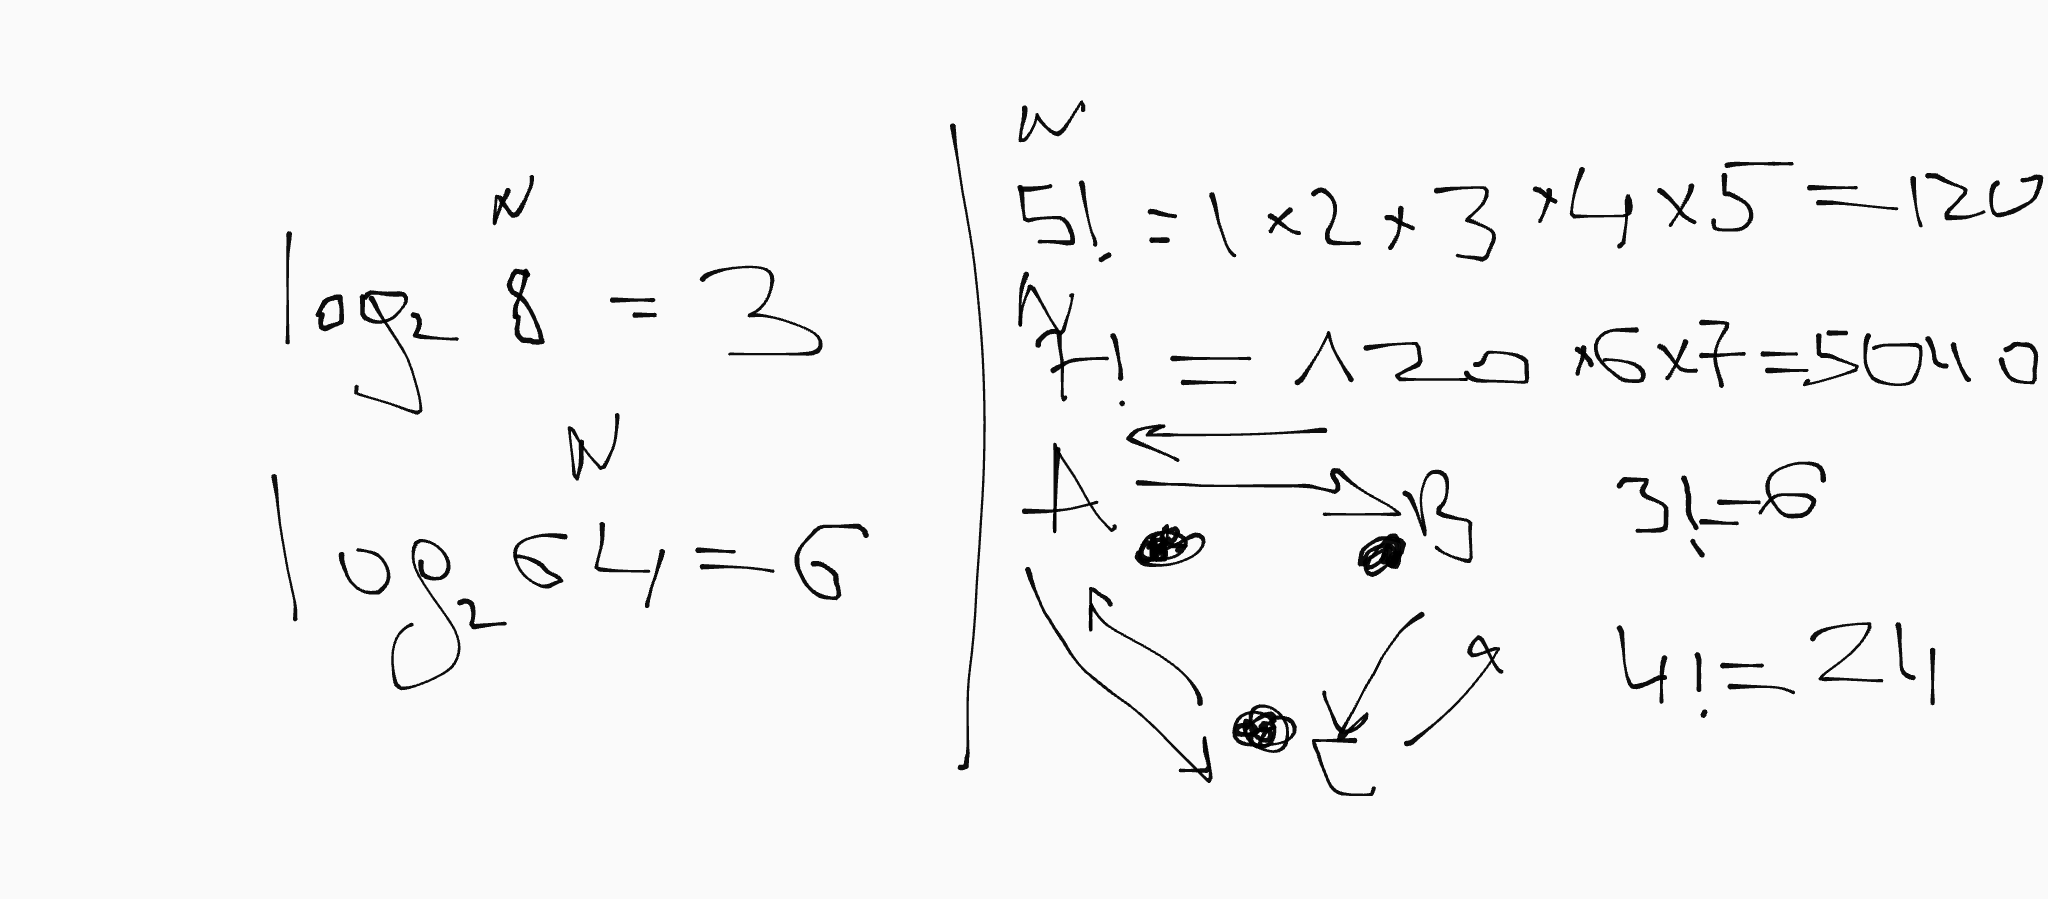 N
log₂ 8 = 3
N
log₂ 64 = 6
N
5! = 1 × 2 × 3 × 4 × 5 = 120
N
7! = 120 × 6 × 7 = 5040
A B
C
3! = 6
4! = 24